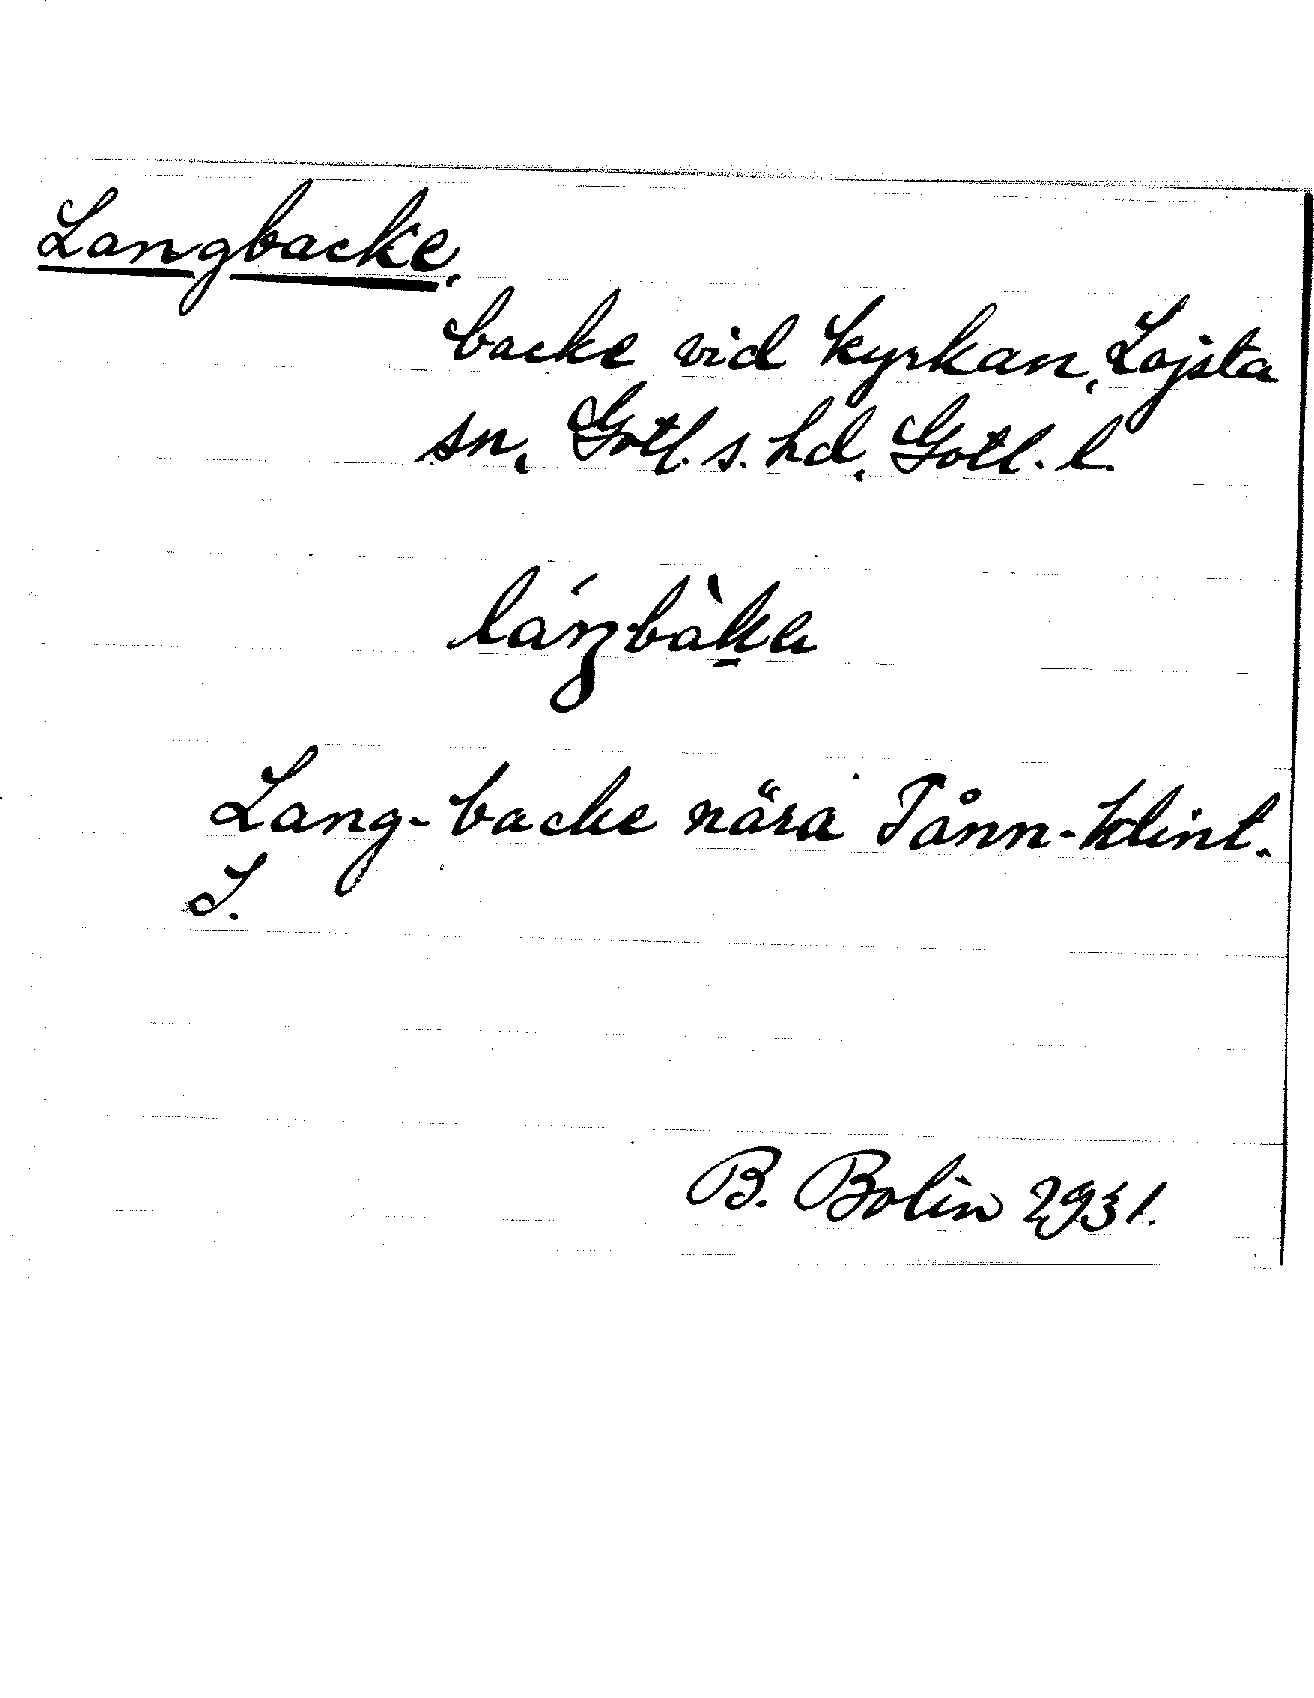 Langbacke.
backe vid kyrkan, Lojsta
sn, Gotl. s. hd, Gotl. l.
láŋbàka
Lang-backe nära Tånn-klint.
S.
B. Bolin 1931.